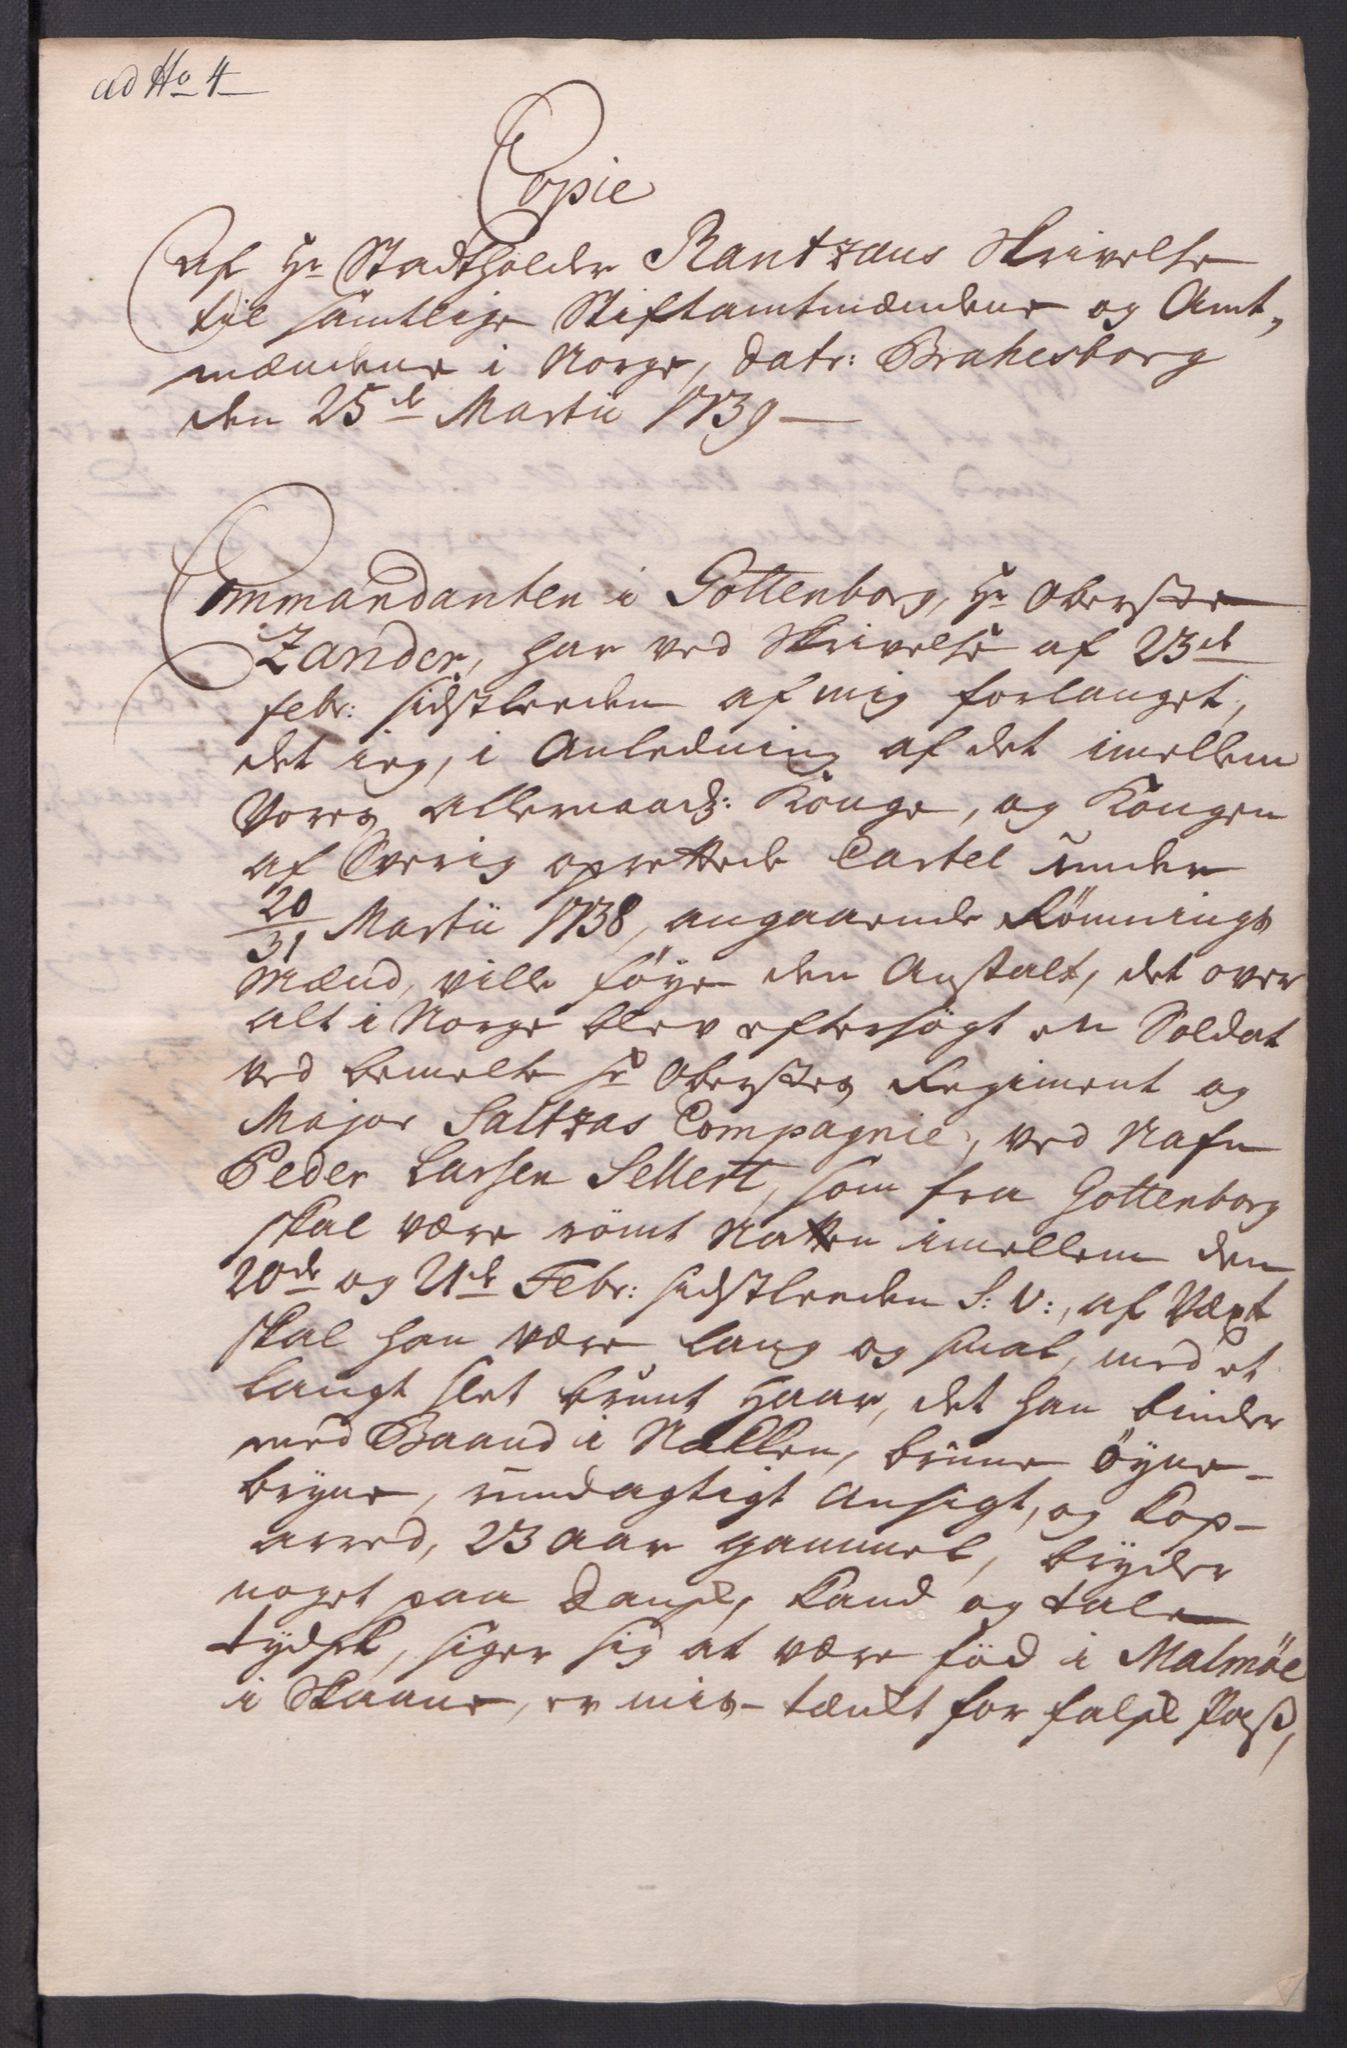 ad No 4
Copie
Af Hr Stadtholder Rantzaus Skrivelse
til samtlige Stiftamtmændene og Amt,
mændene i Norge, datr: Brahesborg
den 25de Martii 1739
Commandanten i Gottenborg, Hr Oberste
Zander, har ved Skrivelse af 23de
febr: sidstleeden af mig forlanget,
det ieg, i Anledning af det imellem
Vores allernaadg: Konge, og Kongen
af Sverig oprettede Cartel under
20/31 Martii 1738, angaaende Römnings
Mænd, ville föye den Anstalt, det over
alt i Norge blev eftersögt en Soldat
ved bemelte Hr Oberstes Regiment og
Major Saltzas Compagnie, ved Nafn
Peder Larsen Sellert, som fra Gottenborg
skal være römt Natten imellem den
20de og 21de Febr: sidstleeden S: V:, af Væxt
skal han være lang og smal, med et
langt slet brunt Haar, det han binder
med Baand i Nakken, brune öyne-
bryne, rundagtigt Ansigt, og Kop-
arred, 23 aar gammel, bryder
noget paa Dansk, kand og tale
tydsk, siger sig at være föd i Malmöe
i Skaane, er mis-tænkt for falsk Pass,